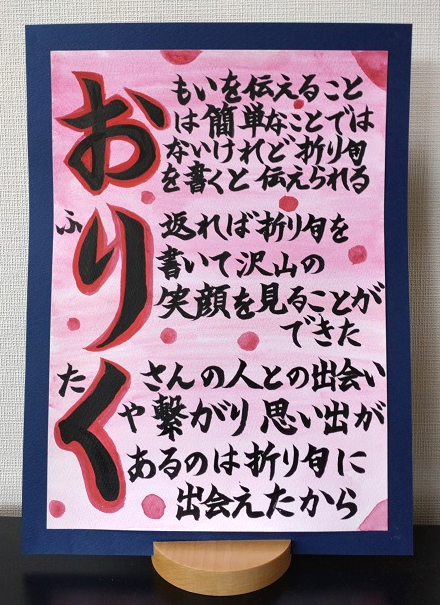 おもいを伝えること
は簡単なことでは
ないけれど折り句
を書くと伝えられる
ふり返れば折り句を
書いて沢山の
笑顔を見ることが
できた
たくさんの人との出会い
や繋がり思い出が
あるのは折り句に
出会えたから